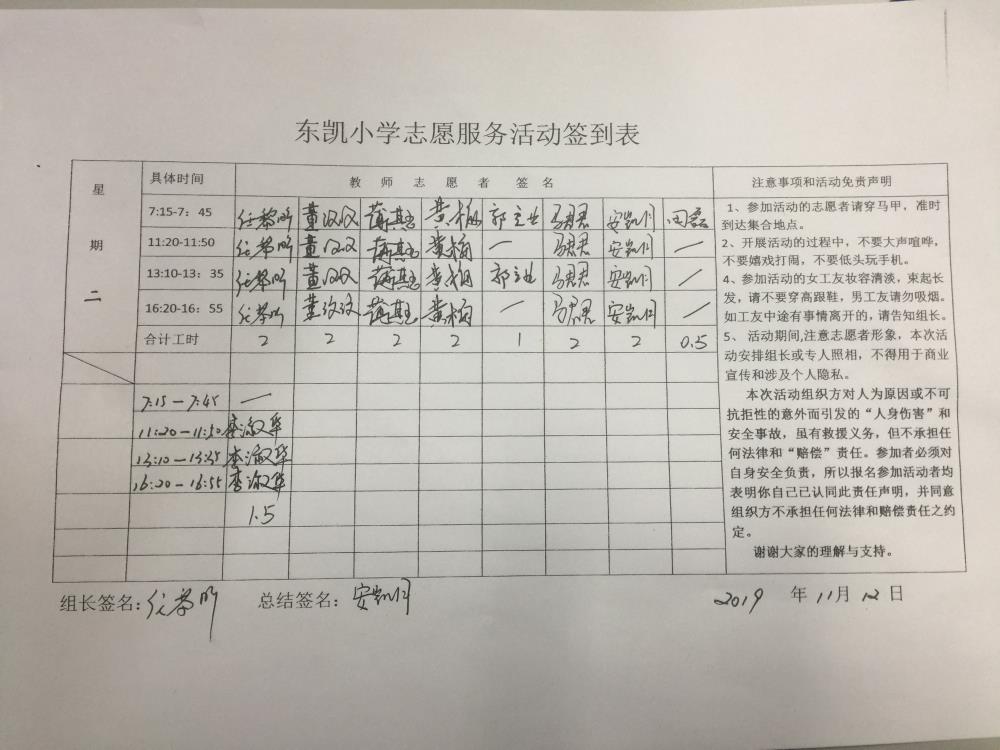 东凯小学志愿服务活动签到表
星期二
具体时间 教师志愿者签名 注意事项和活动免责声明
7:15-7：45 董汶汶 黄梅 郭立业 马君君 安凯月 田磊
11:20-11:50 董汶汶 黄梅 — 马君君 安凯月 —
13:10-13：35 董汶汶 黄梅 郭立业 马君君 安凯月 —
16:20-16：55 董汶汶 黄梅 — 马君君 安凯月 —
合计工时 2 2 2 2 1 2 2 0.5
7:15—7:45 —
11:20—11:50 李淑华
13:10—13:35 李淑华
16:20—16:55 李淑华
1.5
1、参加活动的志愿者请穿马甲，准时
到达集合地点。
2、开展活动的过程中，不要大声喧哗，
不要嬉戏打闹，不要低头玩手机。
4、参加活动的女工友妆容清淡，束起长
发，请不要穿高跟鞋，男工友请勿吸烟。
如工友中途有事情离开的,请告知组长。
5、 活动期间,注意志愿者形象，本次活
动安排组长或专人照相，不得用于商业
宣传和涉及个人隐私。
本次活动组织方对人为原因或不可
抗拒性的意外而引发的“人身伤害”和
安全事故，虽有救援义务，但不承担任
何法律和“赔偿”责任。参加者必须对
自身安全负责，所以报名参加活动者均
表明你自己已认同此责任声明，并同意
组织方不承担任何法律和赔偿责任之约
定。
谢谢大家的理解与支持。
组长签名： 总结签名：安凯月 2019 年 11月 12 日